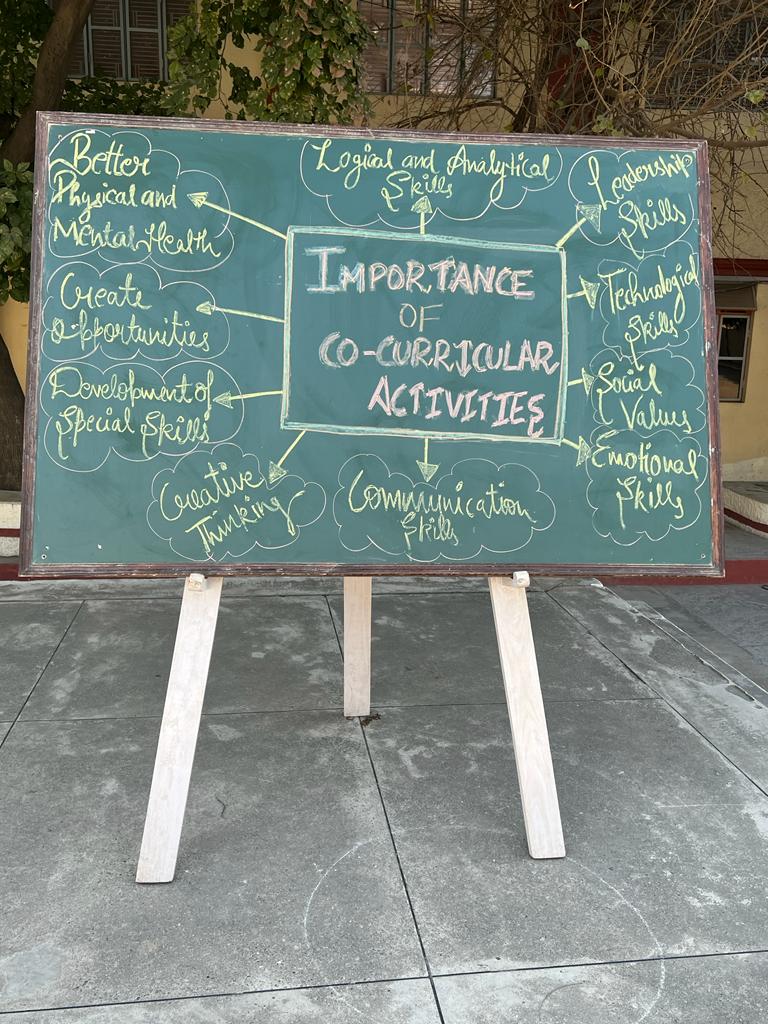 Better
Physical and
Mental Health
Logical and Analytical
Skills
Leadership
Skills
Create
Opportunities
IMPORTANCE
OF
CO-CURRICULAR
ACTIVITIES
Technological
Skills
Development of
Special Skills
Social
Values
Creative
Thinking
Communication
Skills
Emotional
Skills